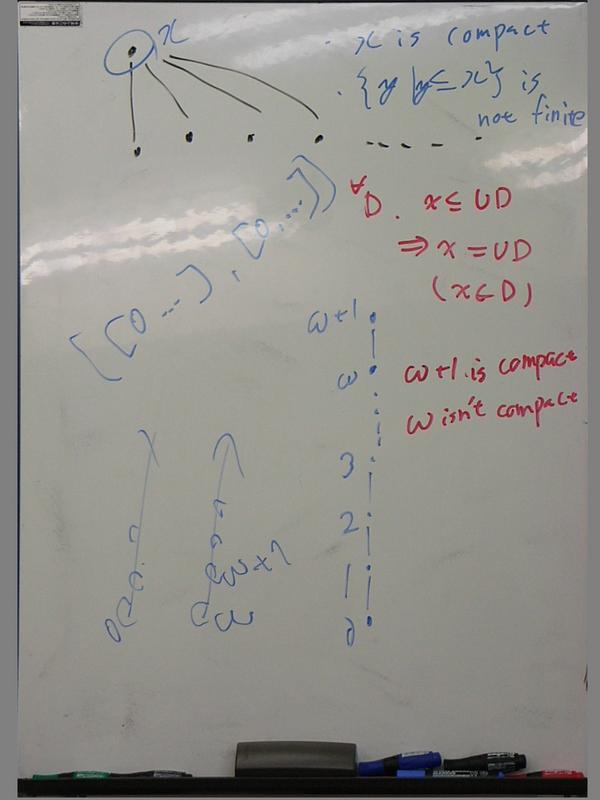 x
· x is compact
· {y | y ≤ x} is
not finite
∀D. x ≤ ∪D
⇒ x = ∪D
(x ∈ D)
[[0 ...), [0, ...))
ω+1
ω
ω+1 is compact
ω isn't compact
3
2
1
0
ω+1
ω
0